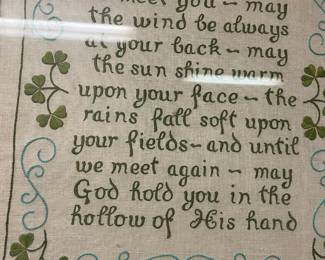 meet you ~ may
the wind be always
at your back ~ may
the sun shine warm
upon your face ~ the
rains fall soft upon
your fields ~ and until
we meet again ~ may
God hold you in the
hollow of His hand